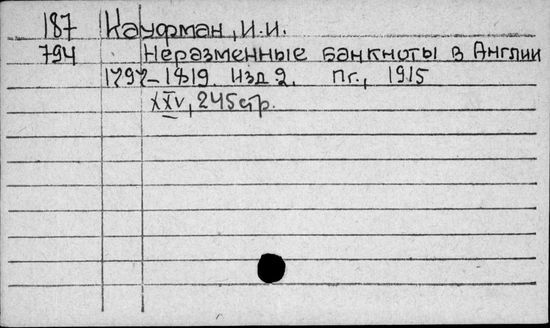 187 Кауфман, И.И.
794 Неразменные банкноты в Англии
1797-1819. Изд 2. Пг., 1915
XXV, 245 стр.